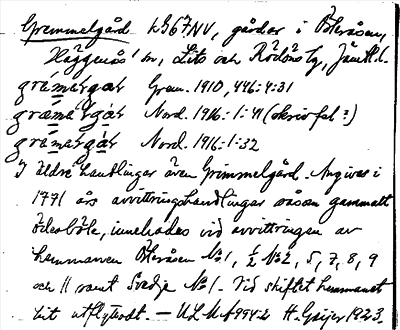 Gremmelgård k 367 NV, gårdar i Österåsen,
Häggenås' sn, Lits och Rödöns tg, Jämtl. l.
grémargar Grem. 1910, 446:4:31
græmargár Nord. 1916:1:41 (skrivfel?)
græmargár Nord. 1916:1:32
I äldre handlingar även Grimmelgård. Angives i
1791 års avvittringshandlingar såsom gammalt
ödesböle, innehades vid avvittringen av
hemmanen Österåsen No 1, ½ No 2, 5, 7, 8, 9
och 11 samt Svedje No 1. Vid skiftet hemmanet
hit utflyttadt. — ULMA 994:2 H. Geijer 1923.